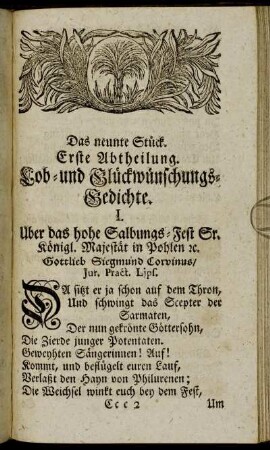 Das neunte Stück.
Erste Abtheilung.
Lob- und Glückwünschungs-
Gedichte.
I.
Uber das hohe Salbungs-Fest Sr.
Königl. Majestät in Pohlen ꝛc.
Gottlieb Siegmund Corvinus/
Jur. Pract. Lips.
DA sitzt er ja schon auf dem Thron,
Und schwingt das Scepter der
Sarmaten,
Der nun gekrönte Göttersohn,
Die Zierde junger Potentaten.
Geweyhten Sängerinnen! Auf!
Kommt, und beflügelt euren Lauf,
Verlaßt den Hayn von Philurenen;
Die Weichsel winkt euch bey dem Fest,
Ccc 2 Um